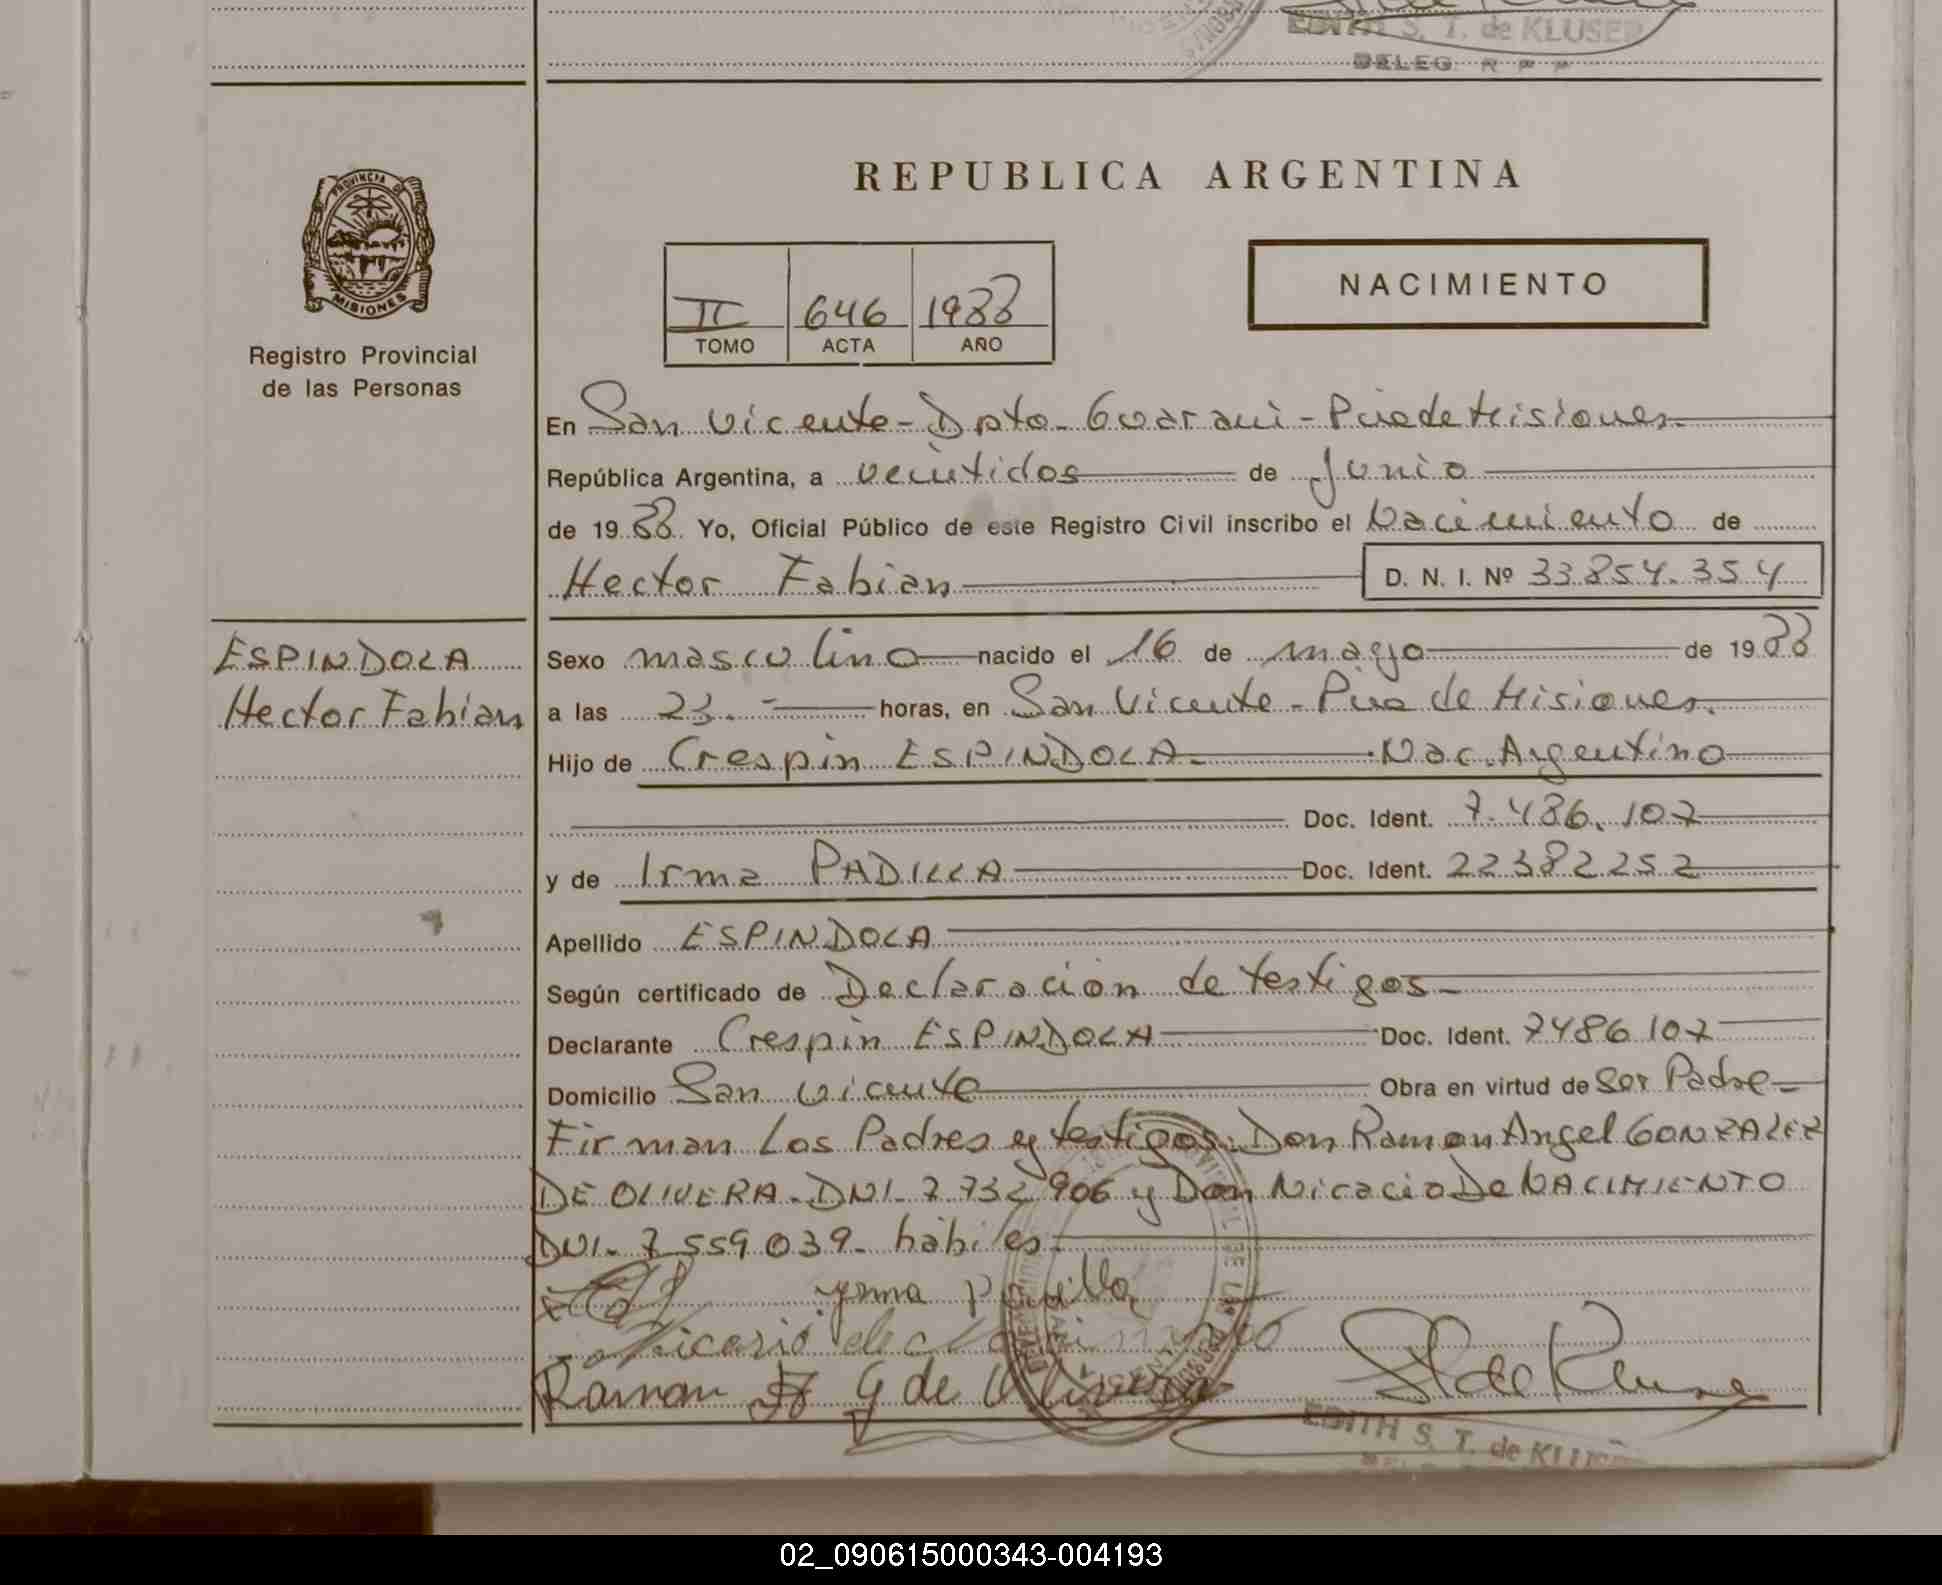 EDITH S. T. de KLUSER
DELEG. R P P
PROVINCIA D
MISIONES
Registro Provincial
de las Personas
REPUBLICA ARGENTINA
II 646 1988
TOMO ACTA AÑO
NACIMIENTO
En San Vicente - Dpto. Guarani - Pcia de Misiones
República Argentina, a veintidos de Junio
de 1988 Yo, Oficial Público de este Registro Civil inscribo el Nacimiento de
Hector Fabian D. N. I. Nº 33.854.354
ESPINDOLA
Hector Fabian
Sexo masculino nacido el 16 de mayo de 1988
a las 23.- horas, en San Vicente - Pcia de Misiones.
Hijo de Crespin ESPINDOLA - Nac. Argentino
Doc. Ident. 7.486.107
y de Irma PADILLA Doc. Ident. 22382252
Apellido ESPINDOLA
Según certificado de Declaración de testigos -
Declarante Crespin ESPINDOLA Doc. Ident. 7486107
Domicilio San Vicente Obra en virtud de Ser Padre -
Firman Los Padres y testigos: Don Ramon Angel GONZALEZ
DE OLIVERA - DNI - 7 732 906 y Don Nicacio De NACIMIENTO
DNI - 7 559 039 - habiles -
yrma Padilla
Ramon G de Olivera
EDITH S. T. de KLUSER
02_090615000343-004193